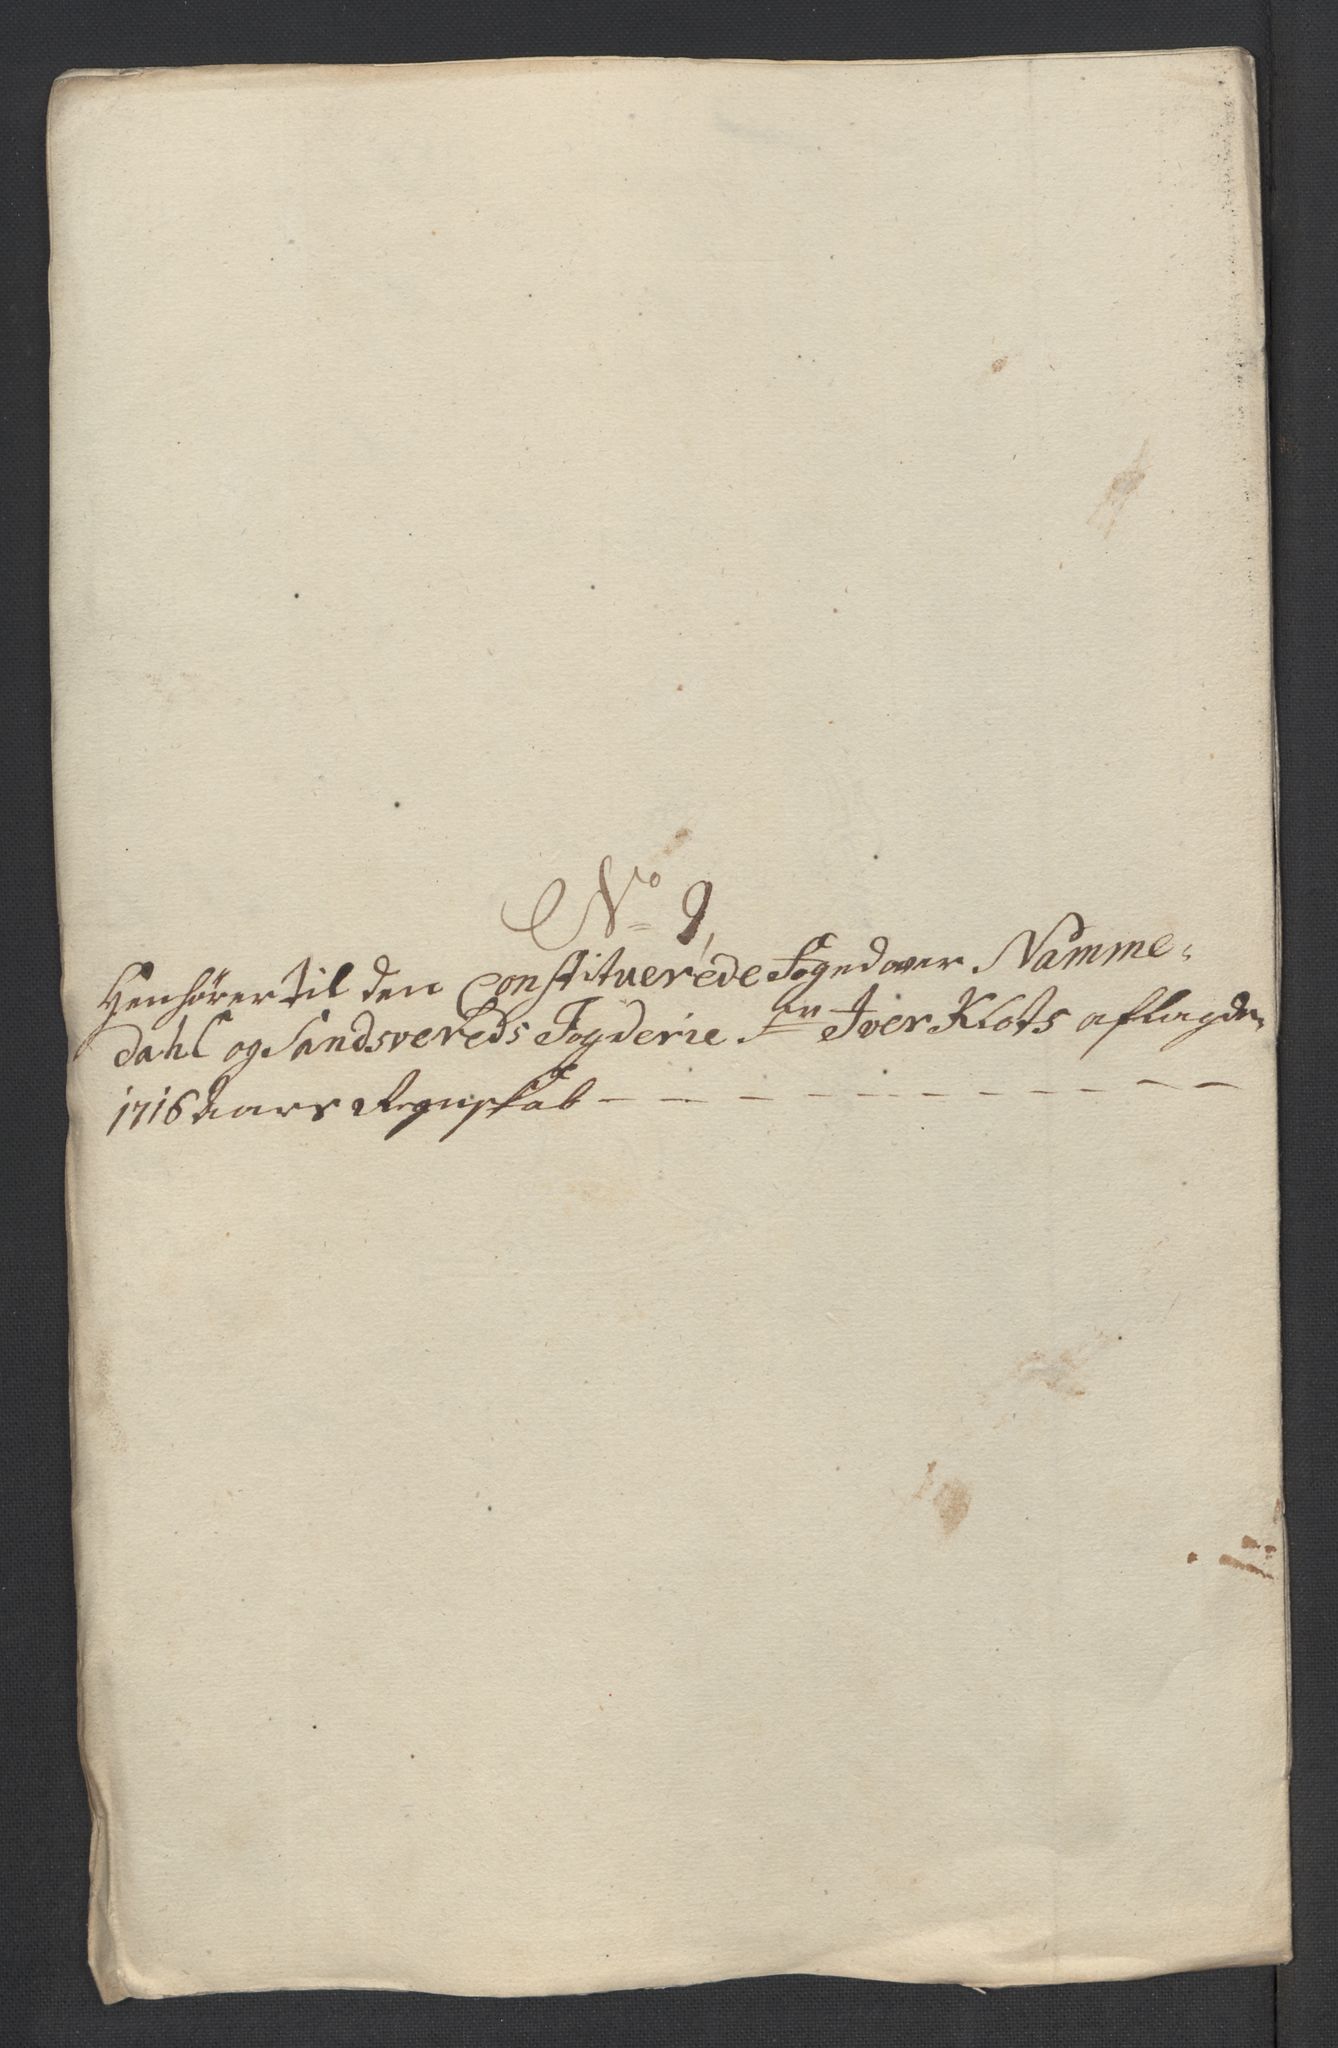 No 9
Henhører til den Constituerede Foged over Numme-
dahl og Sandsvereds Fogderie Sr Iver Klots aflagde
1716 Aars Regnskab